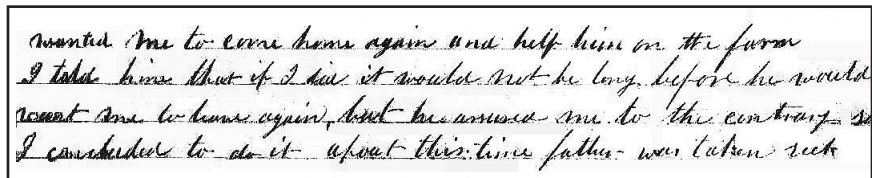 wanted me to come home again and help him on the farm
I told him that if I did it would not be long before he would
want me to leave again, but he assured me to the contrary so
I concluded to do it about this time father was taken sick